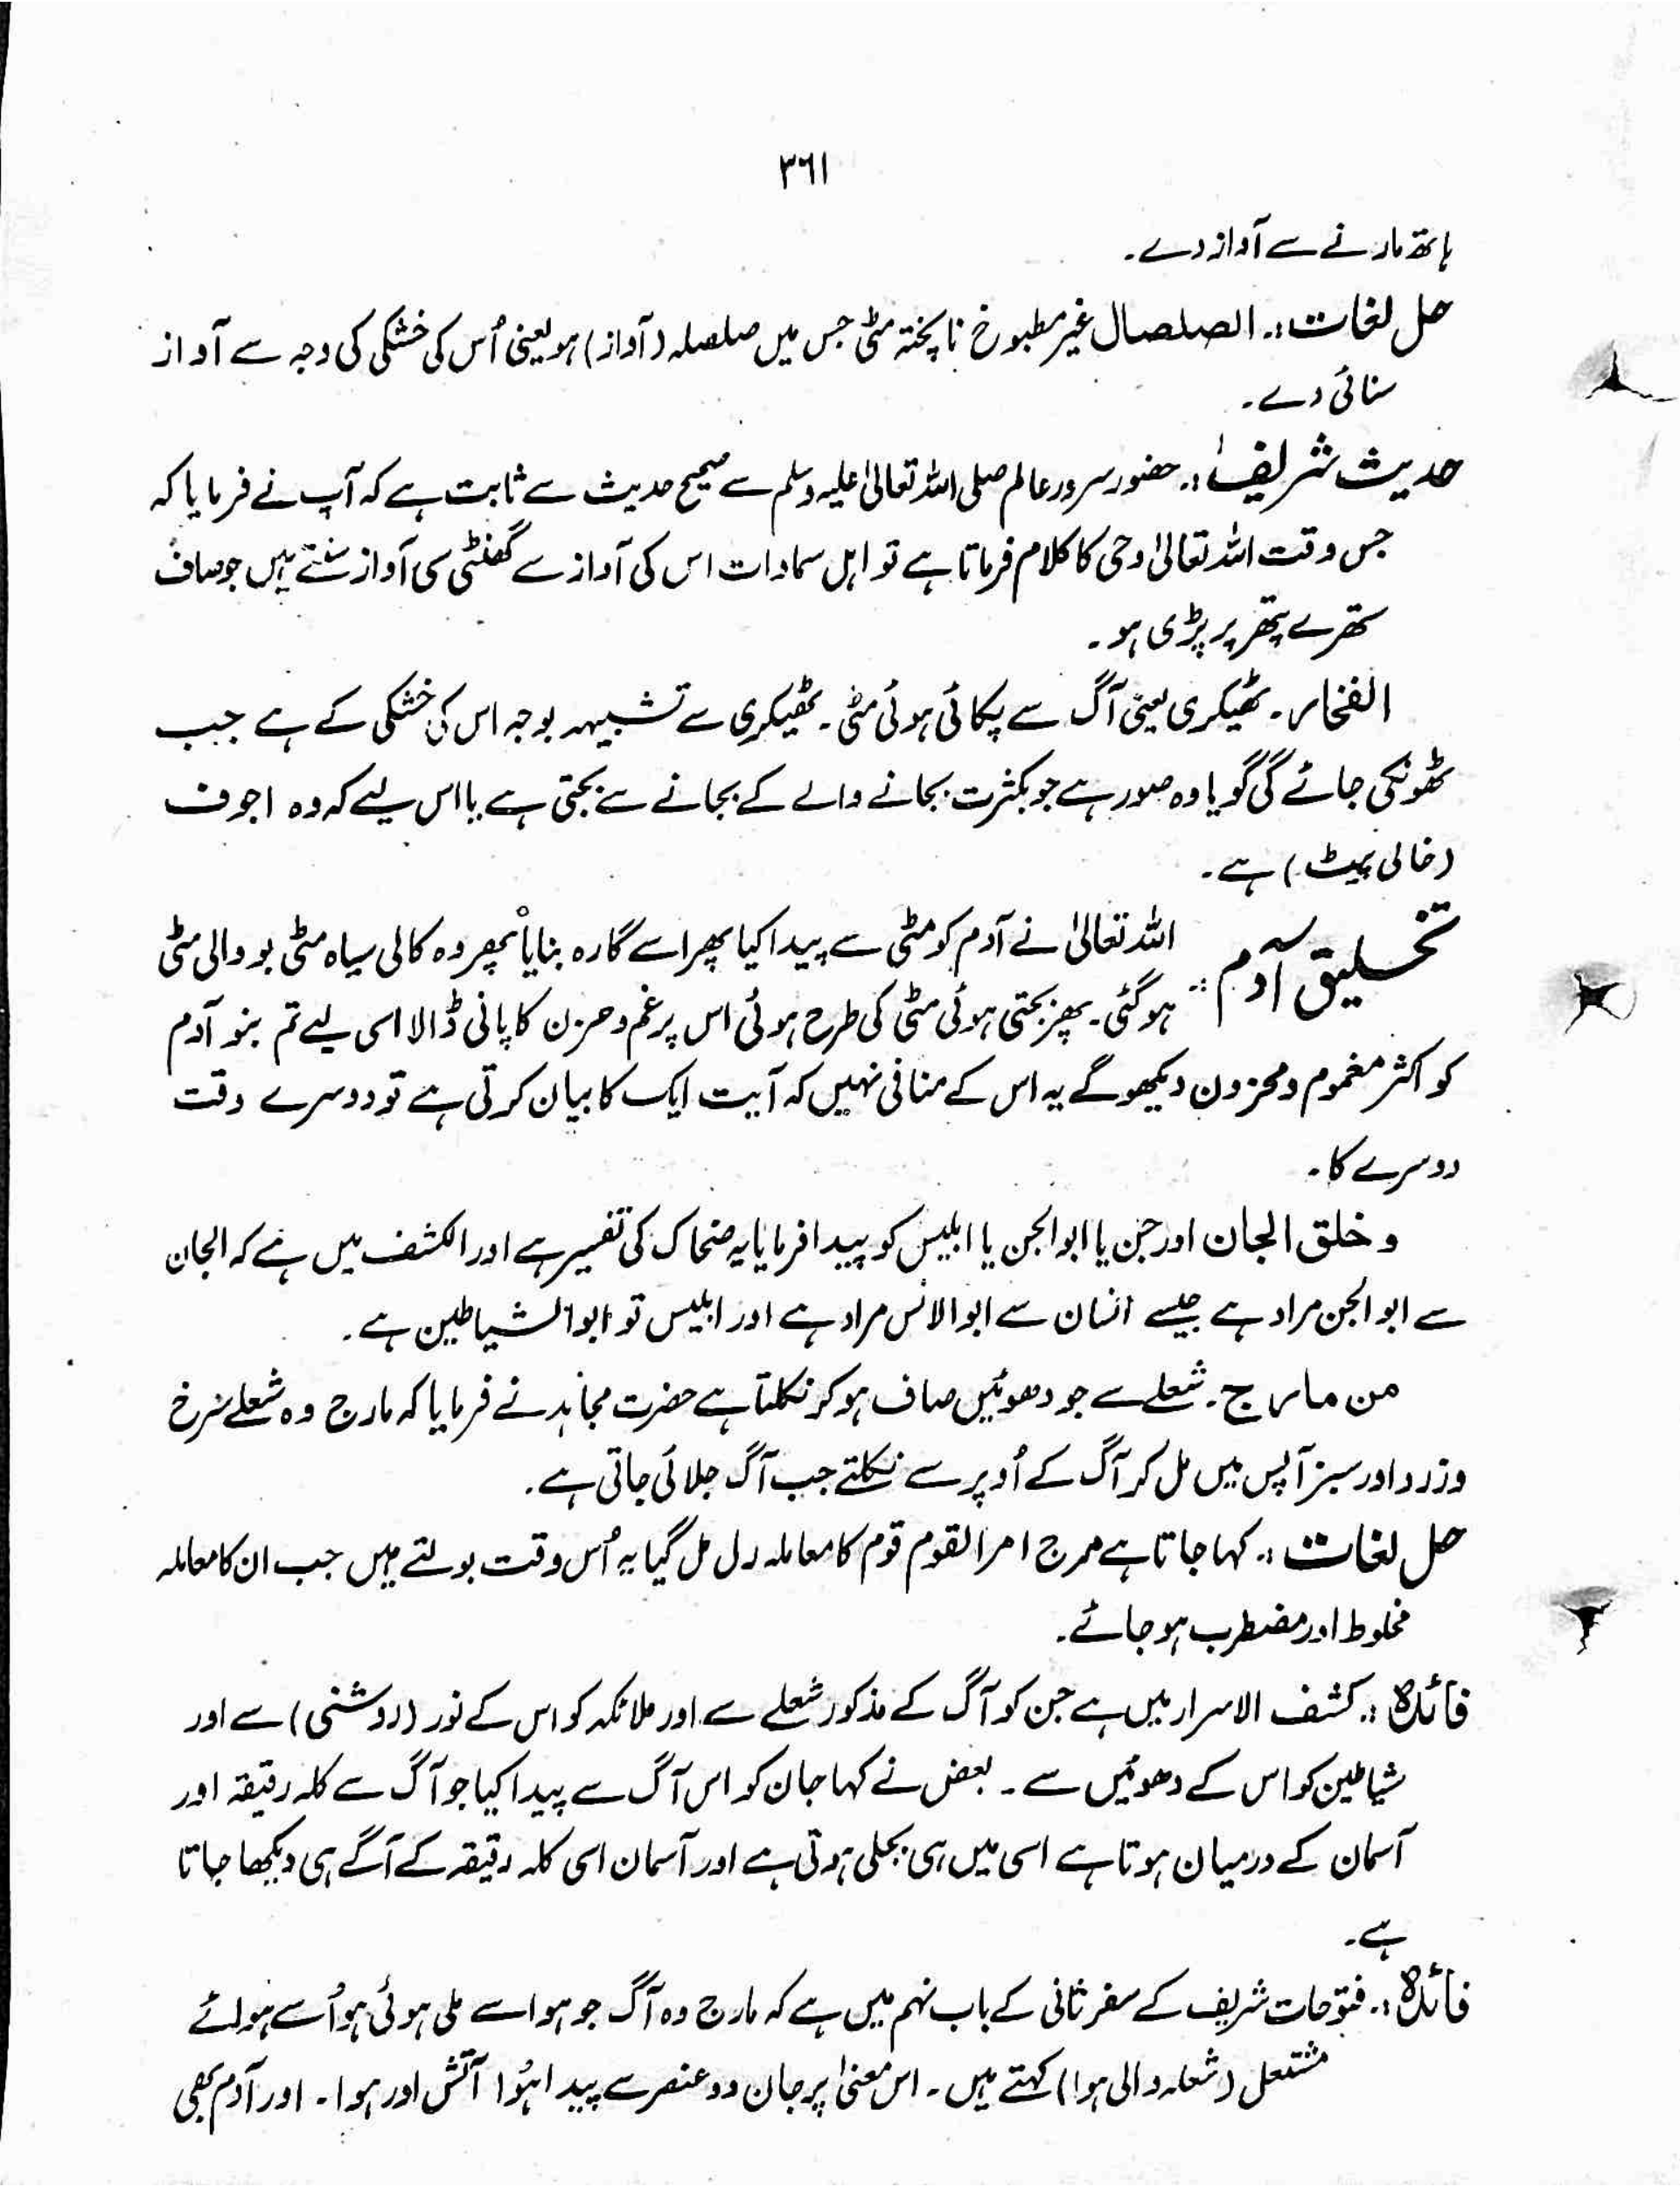 ۳۶۱
ہاتھ مارنے سے آواز دے۔
حل لغات :۔ الصلصال غیر مطبوخ ناپختہ مٹی جس میں صلصلہ (آواز) ہو یعنی اُس کی خشکی کی وجہ سے آواز
سنائی دے۔
حدیث شریف :۔ حضور سرور عالم صلی اللہ تعالیٰ علیہ وسلم سے صحیح حدیث سے ثابت ہے کہ آپ نے فرمایا کہ
جس وقت اللہ تعالیٰ وحی کا کلام فرماتا ہے تو اہل سماوات اس کی آواز سے گھنٹی سی آواز سنتے ہیں جو صاف
ستھرے پتھر پر پڑی ہو۔
الفخار۔ ٹھیکری یعنی آگ سے پکائی ہوئی مٹی۔ ٹھیکری سے تشبیہہ بوجہ اس کی خشکی کے ہے جب
ٹھونکی جائے گی گویا وہ صور ہے جو بکثرت بجانے والے کے بجانے سے بجتی ہے یا اس لیے کہ وہ اجوف
(خالی پیٹ) ہے۔
تخلیق آدم :۔ اللہ تعالیٰ نے آدم کو مٹی سے پیدا کیا پھر اسے گارہ بنایا پھر وہ کالی سیاہ مٹی بو والی مٹی
ہو گئی۔ پھر بجتی ہوئی مٹی کی طرح ہوئی اس پر غم و حزن کا پانی ڈالا اسی لیے تم بنو آدم
کو اکثر مغموم و محزون دیکھو گے یہ اس کے منافی نہیں کہ آیت ایک کا بیان کرتی ہے تو دوسرے وقت
دوسرے کا۔
و خلق الجان اور جن یا ابو الجن یا ابلیس کو پیدا فرمایا یہ ضحاک کی تفسیر ہے اور الکشف میں ہے کہ الجان
سے ابو الجن مراد ہے جیسے انسان سے ابو الانس مراد ہے اور ابلیس تو ابو الشیاطین ہے۔
من مارج۔ شعلے سے جو دھوئیں صاف ہو کر نکلتا ہے حضرت مجاہد نے فرمایا کہ مارج وہ شعلے سرخ
و زرد اور سبز آپس میں مل کر آگ کے اُوپر سے نکلتے جب آگ جلائی جاتی ہے۔
حل لغات :۔ کہا جاتا ہے مرج امر القوم قوم کا معاملہ رل مل گیا یہ اُس وقت بولتے ہیں جب ان کا معاملہ
مخلوط اور مضطرب ہو جائے۔
فائدہ :۔ کشف الاسرار میں ہے جن کو آگ کے مذکور شعلے سے اور ملائکہ کو اس کے نور (روشنی) سے اور
شیاطین کو اس کے دھوئیں سے۔ بعض نے کہا جان کو اس آگ سے پیدا کیا جو آگ سے کلہ رقیقہ اور
آسمان کے درمیان ہوتا ہے اسی میں ہی بجلی ہوتی ہے اور آسمان اسی کلہ رقیقہ کے آگے ہی دیکھا جاتا
ہے۔
فائدہ :۔ فتوحات شریف کے سفر ثانی کے باب نہم میں ہے کہ مارج وہ آگ جو ہوا سے ملی ہوئی ہو اُسے ہوائے
مشتعل (شعلہ والی ہوا) کہتے ہیں۔ اس معنیٰ پر جان دو عنصر سے پیدا ہُوا آتش اور ہوا۔ اور آدم بھی